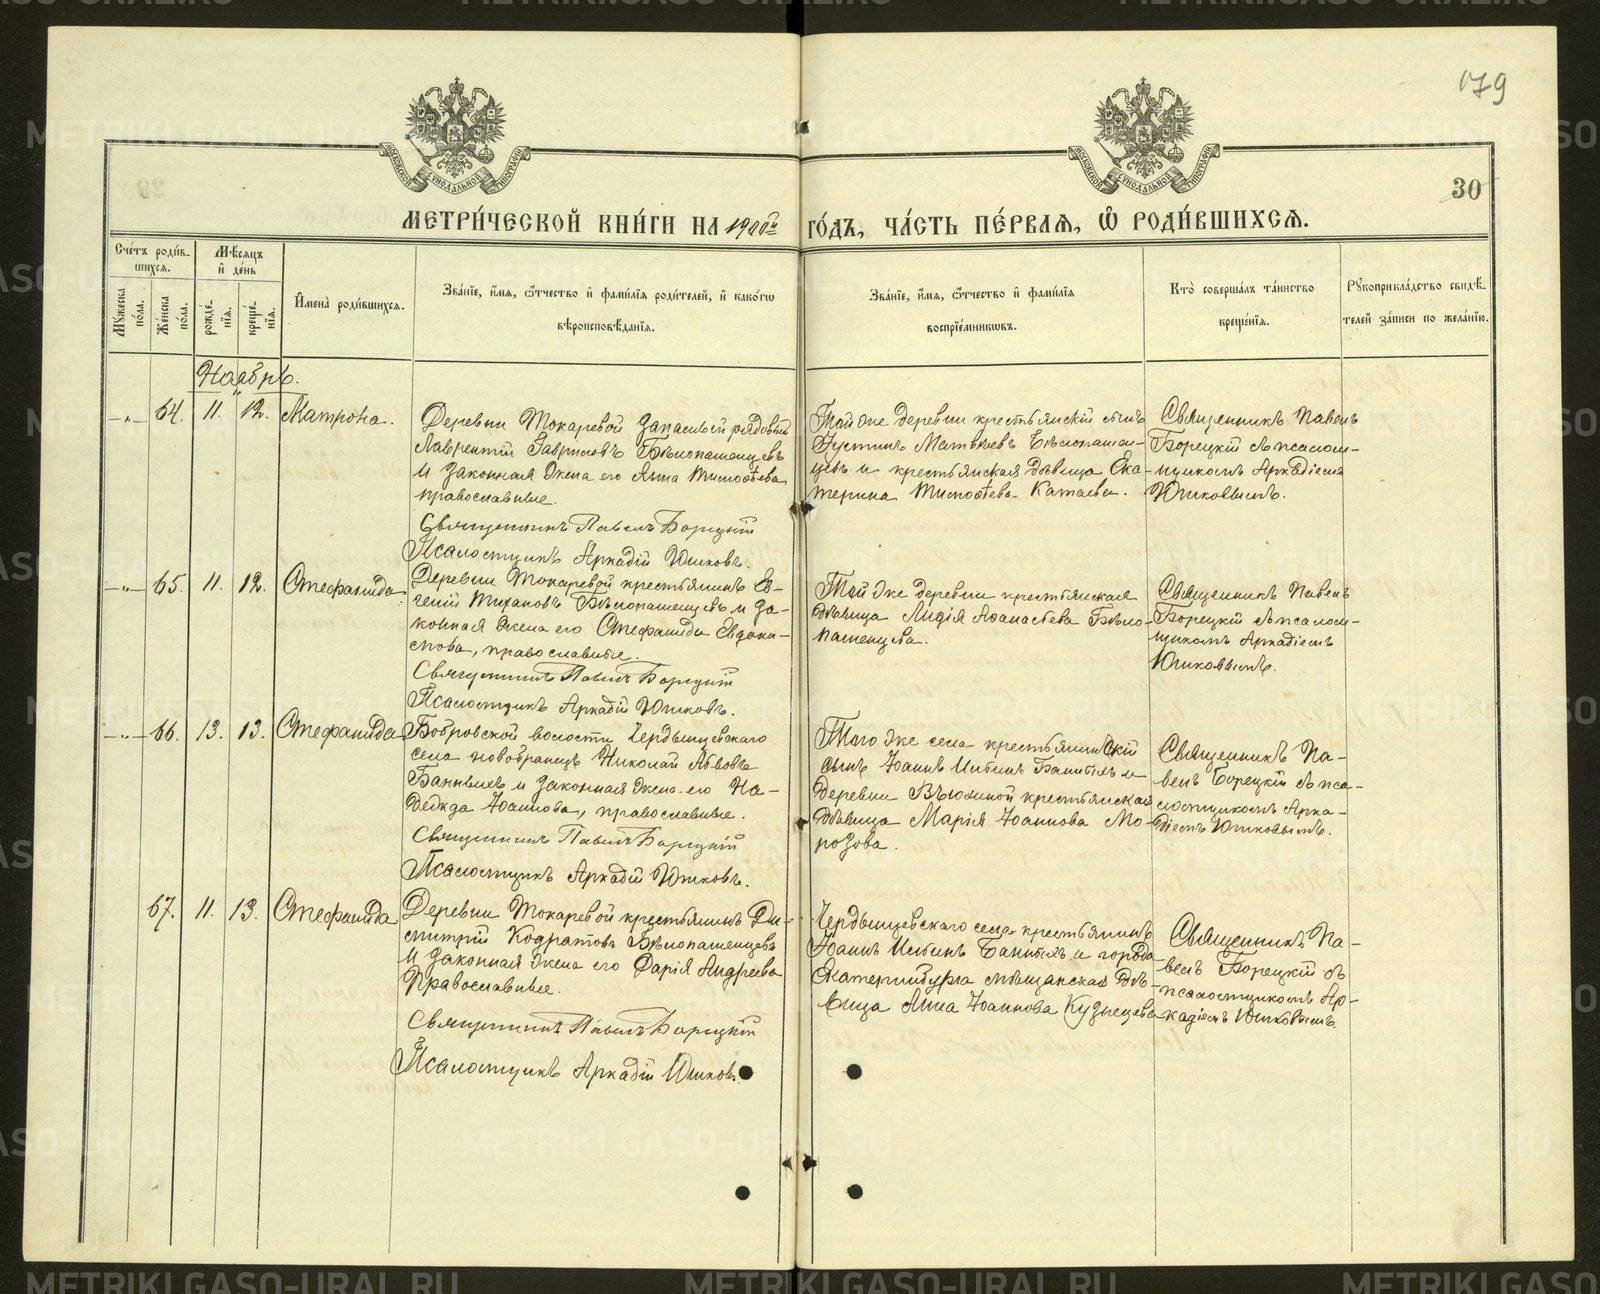 179
30
МОСКОВСКОЙ СѴНОДАЛЬНОЙ ТИПОГРАФІИ
МОСКОВСКОЙ СѴНОДАЛЬНОЙ ТИПОГРАФІИ
МЕТРИ́ЧЕСКОЙ КНИ́ГИ НА 1900й ГО́ДЪ, ЧА́СТЬ ПЕ́РВАѦ, Ѽ РОДИ́ВШИХСѦ.
Сче́тъ роди́в-
шихсѧ.
Мꙋ́жеска
по́ла.
Же́нска
по́ла.
Мѣ́сѧцъ
и҆ де́нь
рожде́-
нїѧ.
креще́-
нїѧ.
И҆мена̀ роди́вшихсѧ.
Зва́нїе, и҆́мѧ, ѻ҆́тчество и҆ фами́лїѧ роди́телей, и҆ како́гѡ
вѣроисповѣ́данїѧ.
Зва́нїе, и҆́мѧ, ѻ҆́тчество и҆ фами́лїѧ
воспрїе́мникѡвъ.
Кто̀ соверша́лъ та́инство
креще́нїѧ.
Рꙋкоприкла́дство свидѣ́-
телей за́писи по жела́нїю.
Ноябрь.
—„— 64. 11. 12. Матрона.
Деревни Токаревой запасный рядовый
Лаврентій Гавриловъ Бѣлопашенцевъ
и законная жена его Анна Тимоѳеева
православные.
Священникъ Павелъ Борецкій
Псаломщикъ Аркадій Юшковъ.
Той же деревни крестьянскій сынъ
Іустинъ Матвѣевъ Бѣлопашен-
цевъ и крестьянская дѣвица Ека-
терина Тимоѳеева Катаева.
Священникъ Павелъ
Борецкій съ псалом-
щикомъ Аркадіемъ
Юшковымъ.
—„— 65. 11. 12. Стефанида.
Деревни Токаревой крестьянинъ Ев-
геній Тихановъ Бѣлопашенцевъ и за-
конная жена его Стефанида Евдоки-
мова, православные.
Священникъ Павелъ Борецкій
Псаломщикъ Аркадій Юшковъ.
Той же деревни крестьянская
дѣвица Лидія Аѳанасьева Бѣло-
пашенцева.
Священникъ Павелъ
Борецкій съ псалом-
щикомъ Аркадіемъ
Юшковымъ.
—„— 66. 13. 13. Стефанида
Бобровской волости Чердынцевскаго
села новобранецъ Николай Львовъ
Банныхъ и законная жена его На-
дежда Іоаннова, православные.
Священникъ Павелъ Борецкій
Псаломщикъ Аркадій Юшковъ.
Того же села крестьянскій
сынъ Іоаннъ Ильинъ Банныхъ и
деревни Вьюхиной крестьянская
дѣвица Марія Іоаннова Мо-
розова.
Священникъ Па-
велъ Борецкій съ пса-
ломщикомъ Арка-
діемъ Юшковымъ.
67. 11. 13. Стефанида
Деревни Токаревой крестьянинъ Ди-
митрій Кодратовъ Бѣлопашенцевъ
и законная жена его Дарія Андреева
Православные.
Священникъ Павелъ Борецкій
Псаломщикъ Аркадій Юшковъ.
Чердынцевскаго села крестьянинъ
Іоаннъ Ильинъ Банныхъ и города
Екатеринбурга мѣщанская дѣ-
вица Анна Іоаннова Кузнецова
Священникъ Па-
велъ Борецкій съ
псаломщикомъ Ар-
кадіемъ Юшковымъ.
METRIKI.GASO-URAL.RU